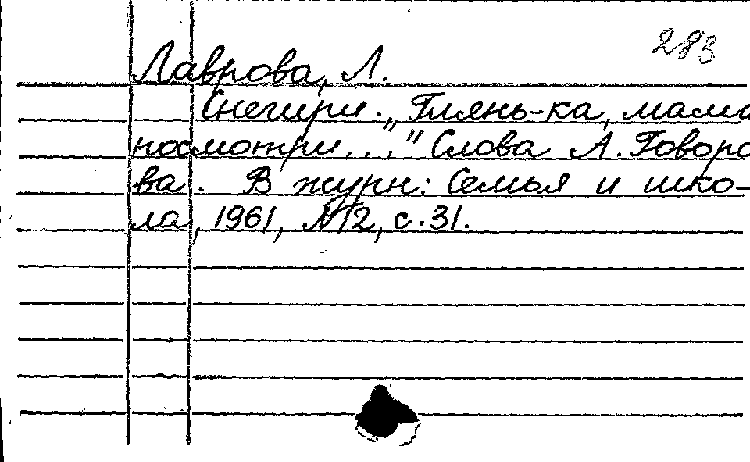 283
Лаврова, Л.
Снегири. „Глянь-ка, мама
посмотри..." Слова А. Говоро
ва. В журн: Семья и шко-
ла, 1961, №12, с.31.